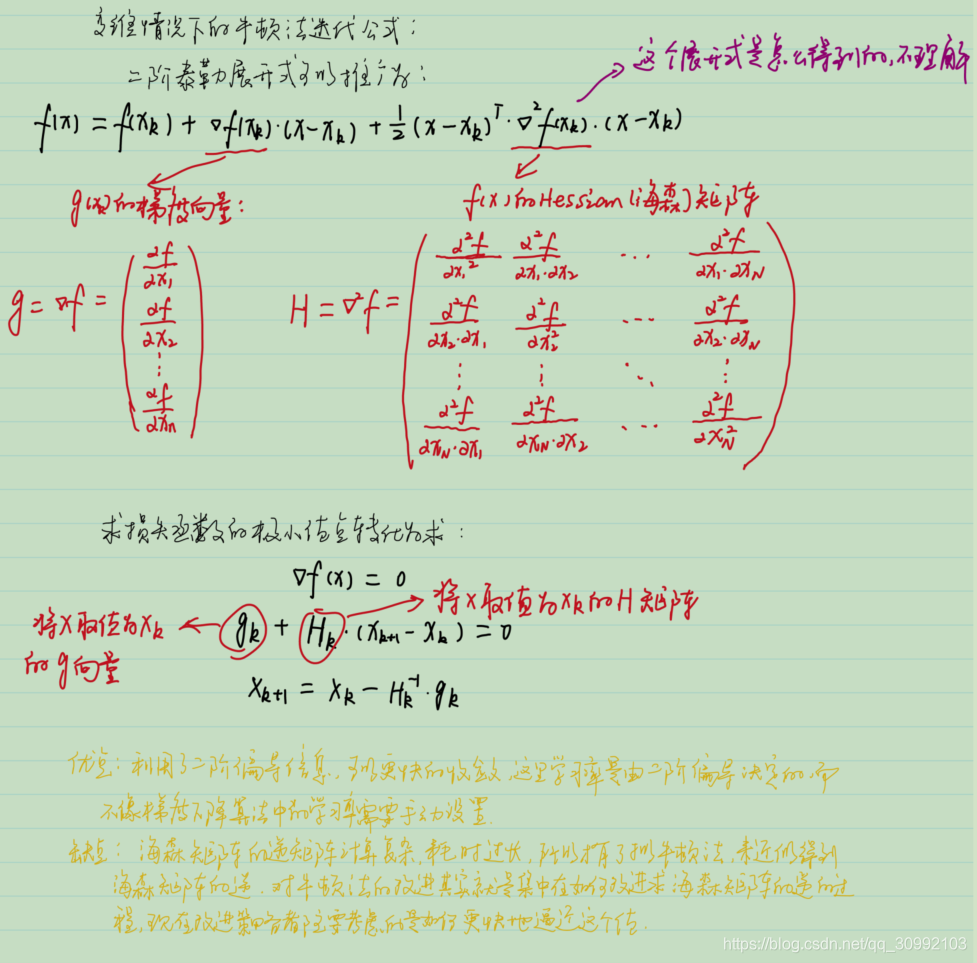 多维情况下的牛顿法迭代公式：
二阶泰勒展开式可以推广为：
这个展开式是怎么得到的，不理解
f(x) = f(x_k) + ∇f(x_k)·(x-x_k) + 1/2 (x-x_k)^T·∇²f(x_k)·(x-x_k)
g(x)的梯度向量：
f(x)的Hessian(海森)矩阵
g = ∇f = (∂f/∂x_1, ∂f/∂x_2, ⋮, ∂f/∂x_n)
H = ∇²f =
∂²f/∂x_1² ∂²f/∂x_1·∂x_2 ··· ∂²f/∂x_1·∂x_N
∂²f/∂x_2·∂x_1 ∂²f/∂x_2² ··· ∂²f/∂x_2·∂x_N
⋮ ⋮ ⋱ ⋮
∂²f/∂x_N·∂x_1 ∂²f/∂x_N·∂x_2 ··· ∂²f/∂x_N²
求损失函数的极小值点转化为求：
∇f(x) = 0
将x取值为x_k的H矩阵
将x取值为x_k
的g向量
g_k + H_k·(x_{k+1} - x_k) = 0
x_{k+1} = x_k - H_k^{-1}·g_k
优点：利用了二阶偏导信息，可以更快的收敛，这里学习率是由二阶偏导决定的，而
不像梯度下降算法中的学习率需要手动设置.
缺点：海森矩阵的逆矩阵计算复杂，耗时过长，所以才有了拟牛顿法，来近似得到
海森矩阵的逆.对牛顿法的改进其实就是集中在如何改进求海森矩阵的逆的过
程，现在改进策略者主要考虑的是如何更快地逼近这个值.
https://blog.csdn.net/qq_30992103